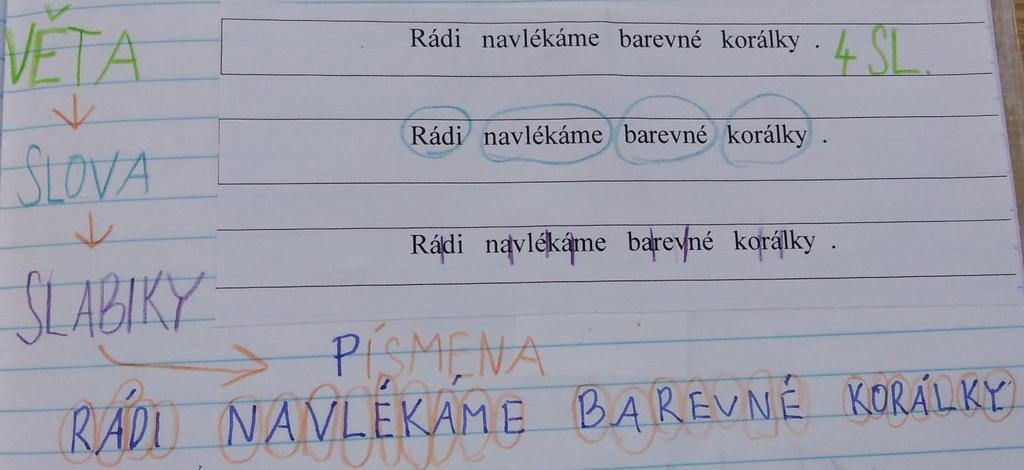 VĚTA
Rádi navlékáme barevné korálky . 4 SL.
SLOVA
Rádi navlékáme barevné korálky .
SLABIKY
Rádi navlékáme barevné korálky .
PÍSMENA
RÁDI NAVLÉKÁME BAREVNÉ KORÁLKY